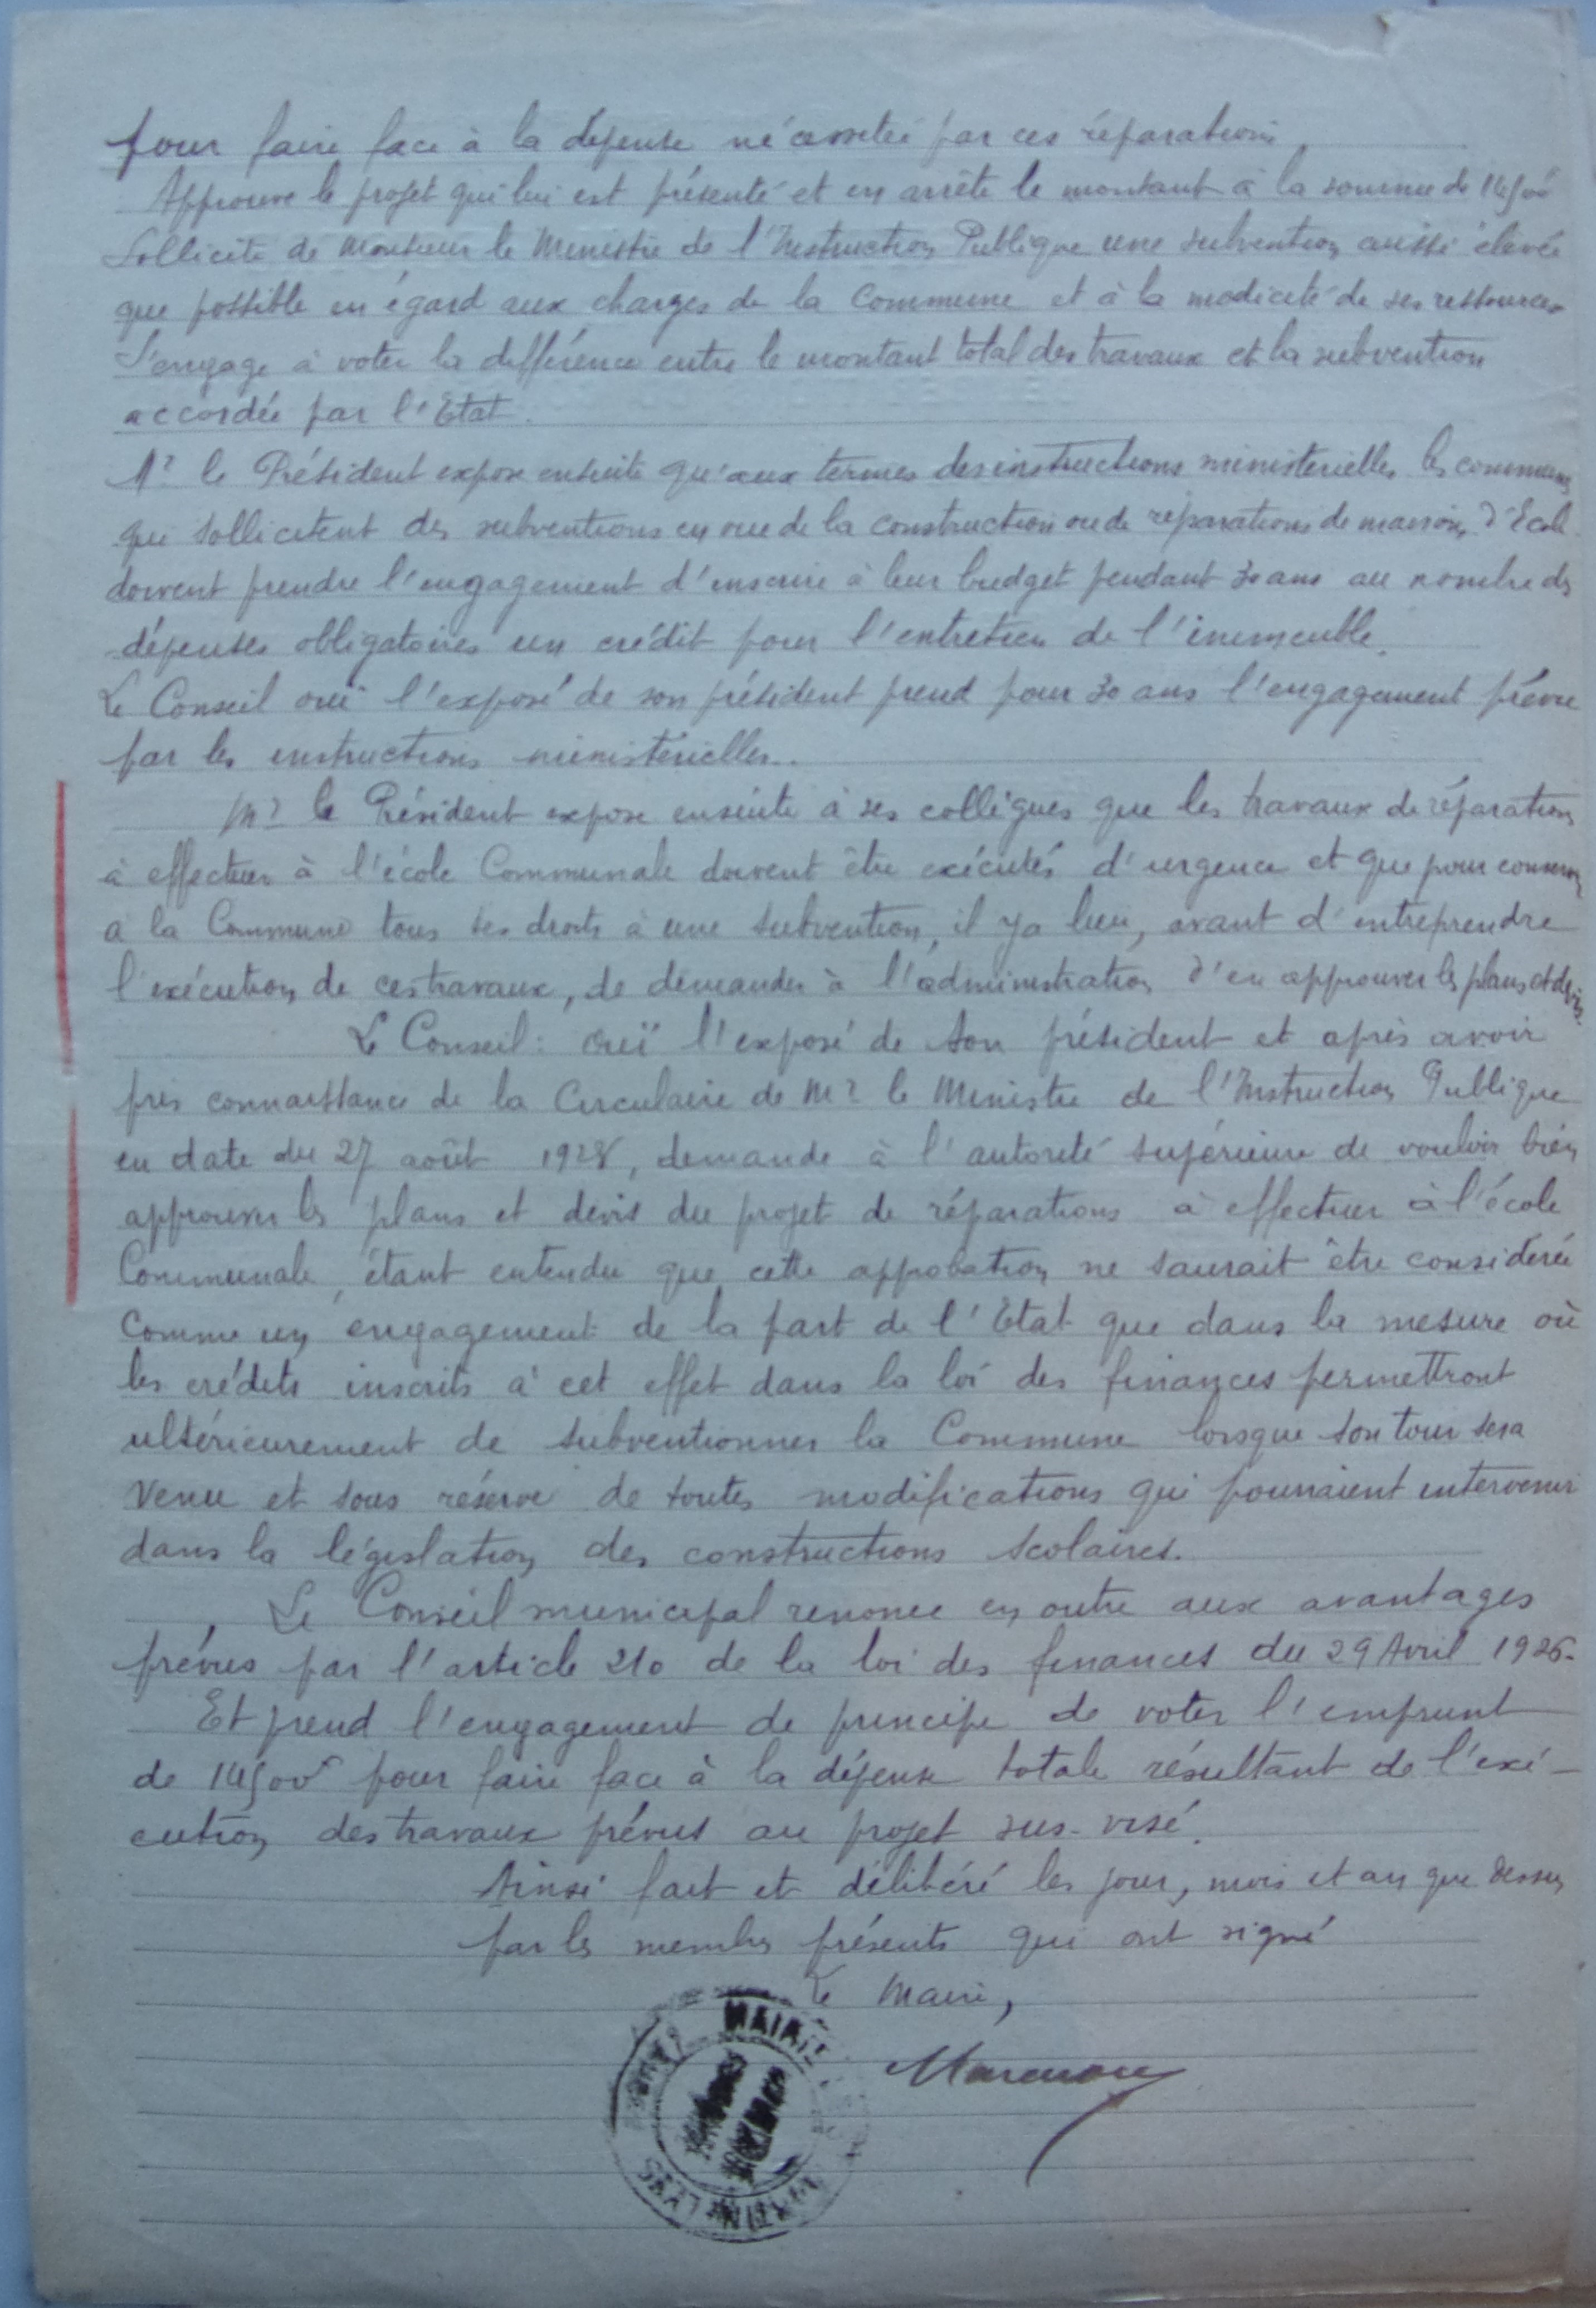 pour faire face à la dépense nécessitée par ces réparations
Approuve le projet qui lui est présenté et en arrête le montant à la somme de 14500
Sollicite de Monsieur le Ministre de l'Instruction Publique une subvention aussi élevée
que possible eu égard aux charges de la Commune et à la modicité de ses ressources
S'engage à voter la différence entre le montant total des travaux et la subvention
accordée par l'Etat.
Mr le Président expose ensuite qu'aux termes des instructions ministérielles les communes
qui sollicitent des subventions en vue de la construction ou de réparations de maisons d'Ecole
doivent prendre l'engagement d'inscrire à leur budget pendant 30 ans au nombre des
dépenses obligatoires un crédit pour l'entretien de l'immeuble.
Le Conseil ouï l'exposé de son président prend pour 30 ans l'engagement prévu
par les instructions ministérielles.
Mr le Président expose ensuite à ses collègues que les travaux de réparations
à effectuer à l'école Communale doivent être exécutés d'urgence et que pour conserver
a la Commune tous ses droits à une subvention, il y a lieu, avant d'entreprendre
l'exécution de ces travaux, de demander à l'administration d'en approuver les plans et devis.
Le Conseil : ouï l'exposé de son président et après avoir
pris connaissance de la Circulaire de Mr le Ministre de l'Instruction Publique
en date du 27 août 1928, demande à l'autorité supérieure de vouloir bien
approuver les plans et devis du projet de réparations à effectuer à l'école
Communale, étant entendu que cette approbation ne saurait être considérée
comme un engagement de la part de l'Etat que dans la mesure où
les crédits inscrits à cet effet dans la loi des finances permettront
ultérieurement de subventionner la Commune lorsque son tour sera
venu et sous réserve de toutes modifications qui pourraient intervenir
dans la législation des constructions scolaires.
Le Conseil municipal renonce en outre aux avantages
prévus par l'article 210 de la loi des finances du 29 Avril 1926.
Et prend l'engagement de principe de voter l'emprunt
de 14500 pour faire face à la dépense totale résultant de l'exé-
cution des travaux prévus au projet sus-visé.
Ainsi fait et délibéré les jour, mois et an que dessus
par les membres présents qui ont signé
Le Maire,
MAIRIE